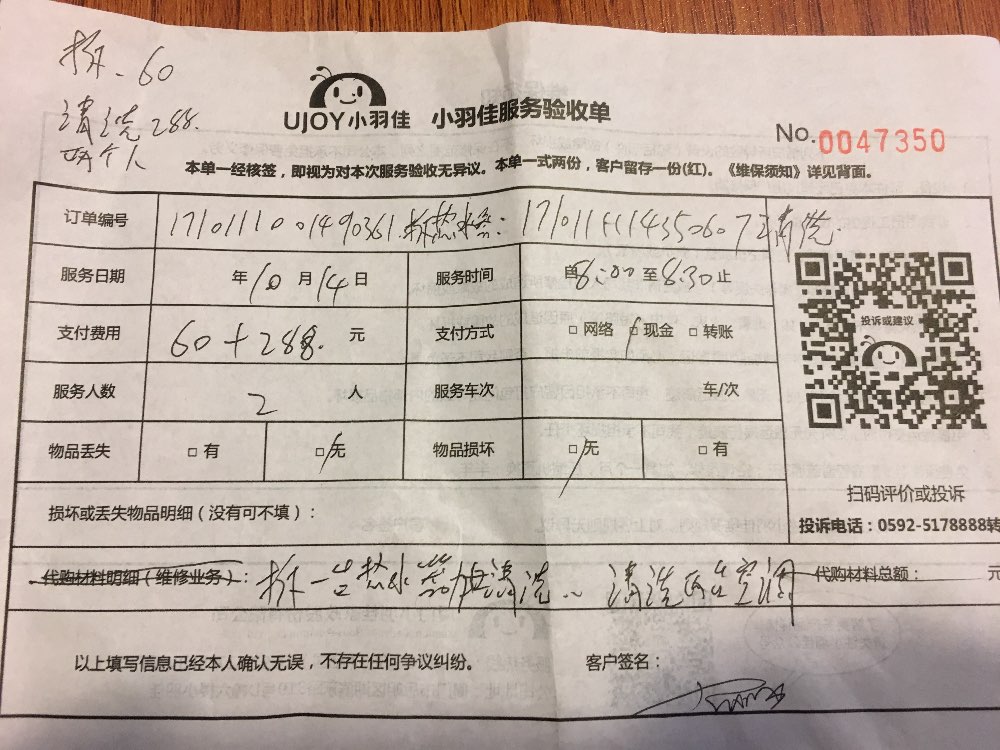 拆-60
清洗288.
两个人
UJOY小羽佳 小羽佳服务验收单
No.0047350
本单一经核签，即视为对本次服务验收无异议。本单一式两份，客户留存一份(红)。《维保须知》详见背面。
订单编号 1710111001490361拆热水器: 清洗
服务日期 年10月14日 服务时间 自8:00至8:30止
支付费用 60+288. 元 支付方式 □网络 □现金 □转账
投诉或建议
服务人数 2 人 服务车次 车/次
物品丢失 □有 □无 物品损坏 □无 □有
扫码评价或投诉
损坏或丢失物品明细（没有可不填）：
投诉电话：0592-5178888转
代购材料明细（维修业务）：拆一台热水器加清洗.. 清洗两台空调 代购材料总额： 元
以上填写信息已经本人确认无误，不存在任何争议纠纷。 客户签名：